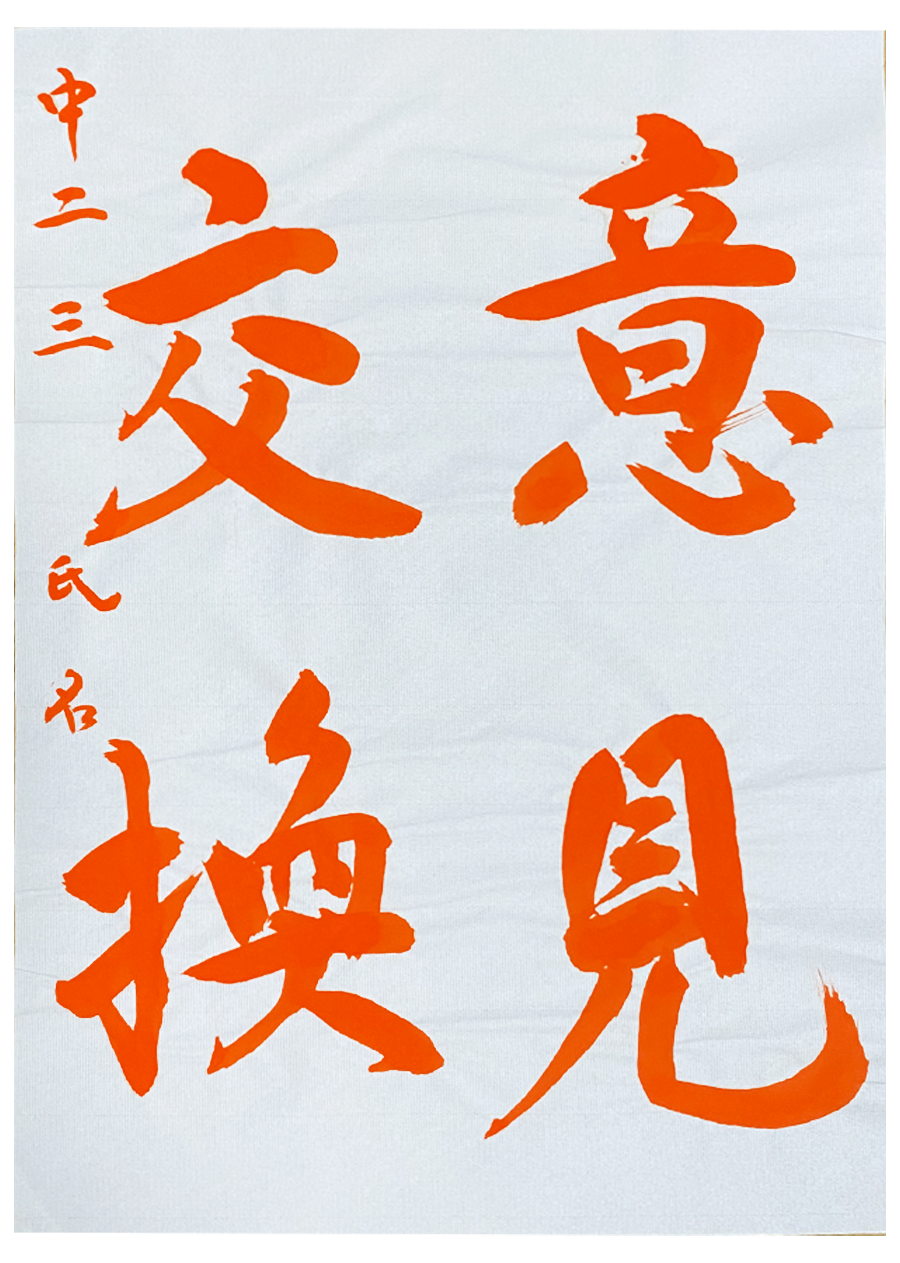 意見
交換
中二三 氏名